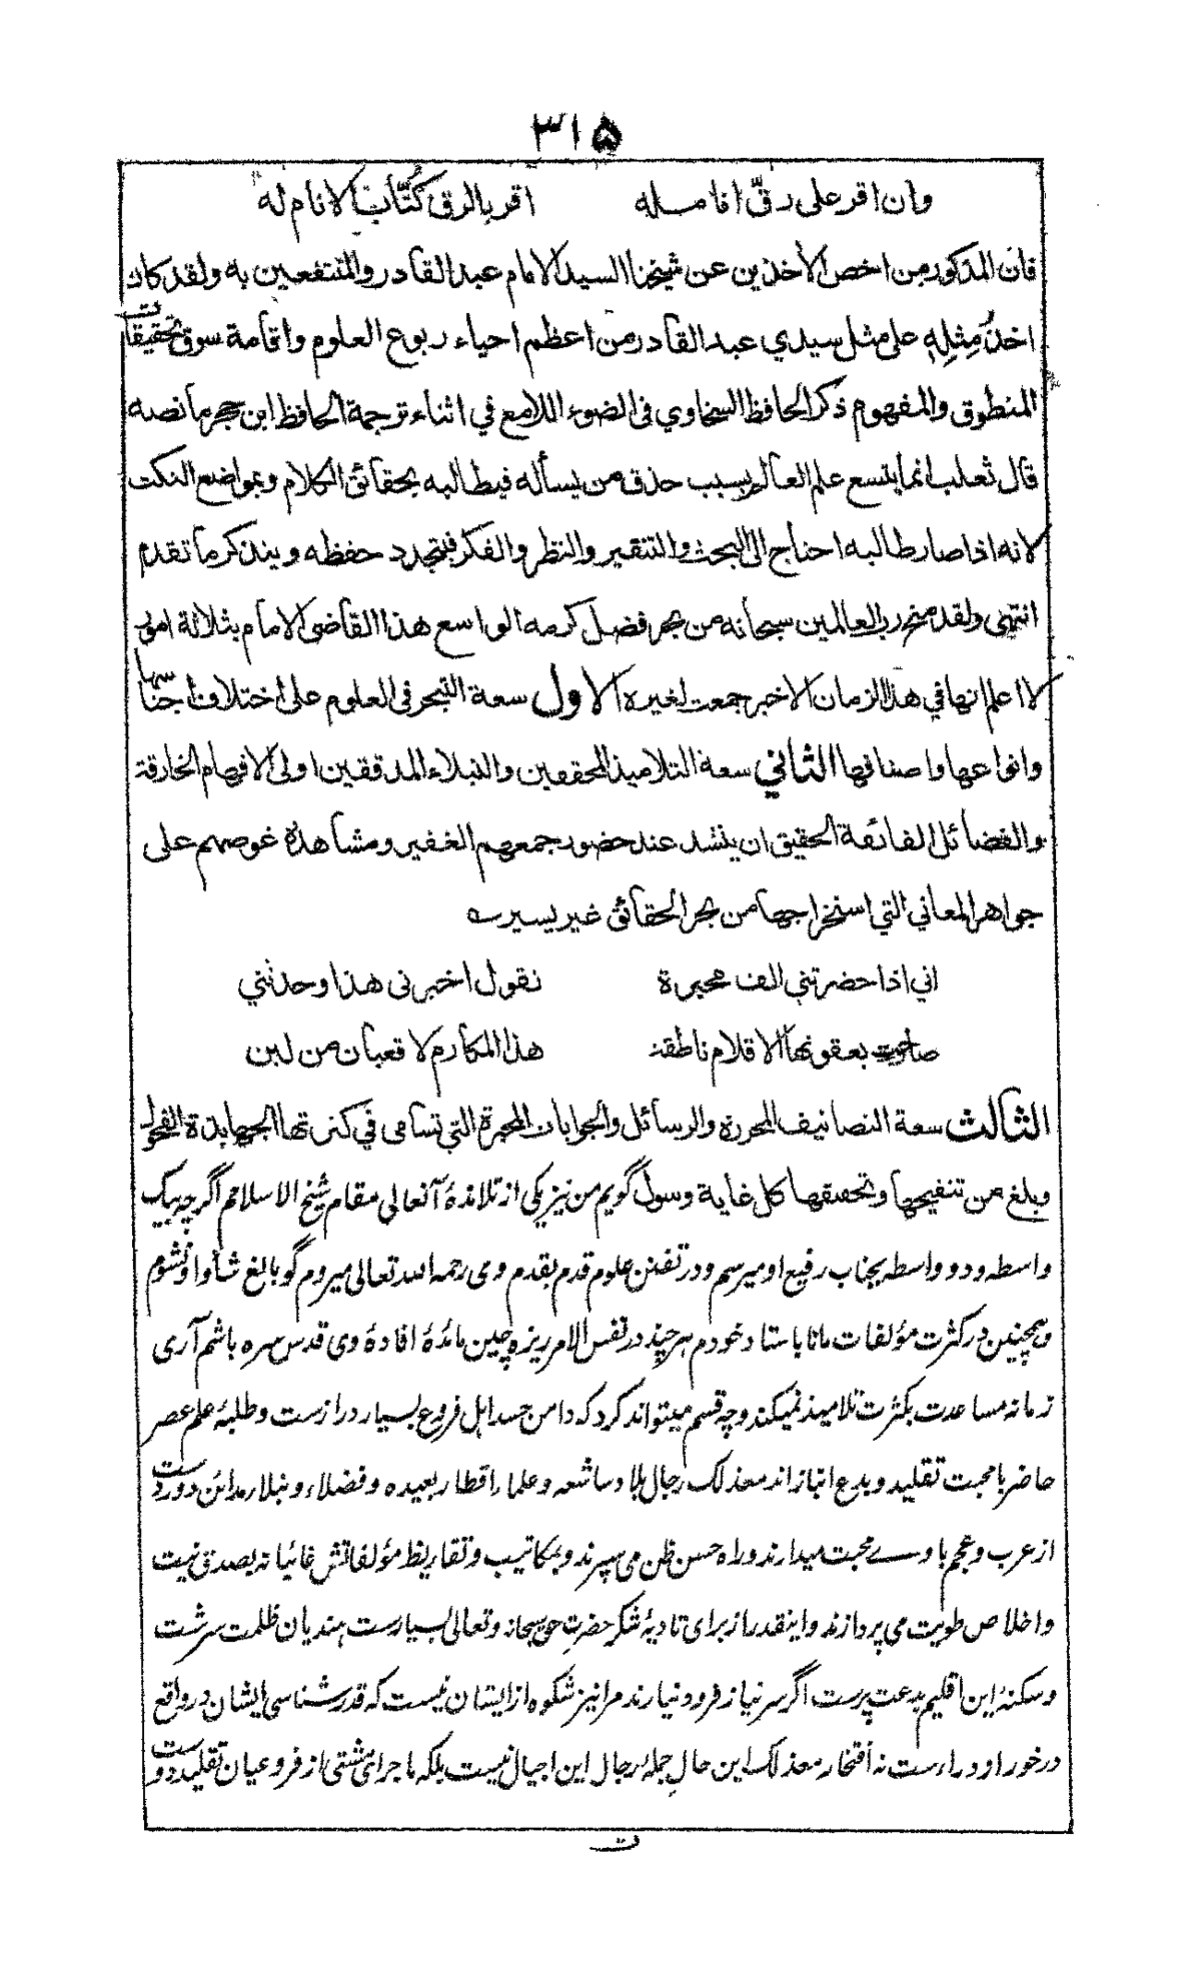 ۳۱۵
وان اقر على رق انامله اقر بالرق كُتّاب الانام له
فان المذكور من اخص الآخذين عن شيخنا السيد الامام عبد القادر والمنتفعين به ولقد كان
اخذُ مِثلِهِ على مثل سيدي عبد القادر من اعظم احياء ربوع العلوم واقامة سوق تحقيقات
المنطوق والمفهوم ذكر الحافظ السخاوي فى الضوء اللامع في اثناء ترجمة الحافظ ابن حجر ما نصه
قال ثعلب انما يتسع علم العالم بسبب حذق من يسأله فيطالبه بحقائق الكلام وبمواضع النكت
لانه اذا صار طالبه احتاج الى البحث والتنقير والنظر والفكر فيتجدد حفظه ويتذكر ما تقدم
انتهى ولقد منح رب العالمين سبحانه من بحر فضل كرمه الواسع هذا القاضى الامام بثلاثة امور
لا اعلم انها في هذا الزمان الاخير جمعت لغيره الاول سعة التبحر فى العلوم على اختلاف اجناسها
وانواعها واصنافها الثاني سعة التلاميذ المحققين والنبلاء المدققين اولى الافهام الخارقة
والفضائل الفائقة الحقيق ان ينشد عند حضور جمعهم الغفير ومشاهدة غوصهم على
جواهر المعاني التي استخراجها من بحر الحقائق غير يسير ـه
اني اذا حضرتني الف محبرة نقول اخبرنى هذا وحدثني
صاحت بعقوتها الاقلام ناطقة هذا المكارم لا قعبان من لبن
الثالث سعة التصانيف المحررة والرسائل والجوابات المحبرة التي تسامى في كثرتها الجهابذة الفحول
وبلغ من تنقيحها وتحقيقها كل غاية وسول گويم من نيز يكى از تلامذۀ آنعالى مقام شيخ الاسلامم اگرچه بيك
واسطه و دو واسطه بجناب رفيع او ميرسم و در تفنن علوم قدم بقدم وى رحمه الله تعالى ميروم گو بالغ شأو او نشوم
و همچنين در كثرت مؤلفات مانا باستاد خودم هر چند در نفس الامر ريزه چين مائدۀ افادۀ وى قدس سره باشم آرى
زمانه مساعدت بكثرت تلاميذ نميكند و چه قسم ميتواند كرد كه دامن حسد اهل فروع بسيار دراز ست و طلبۀ علم عصر
حاضر با محبت تقليد و بدع انباز اند معذلك رجال بلاد شاسعه و علماء اقطار بعيده و فضلاء و نبلاء مدائن دوردست
از عرب و عجم با وے محبت ميدارند و راه حسن ظن مى سپرند و بمكاتيب و تقاريظ مؤلفاتش غائبانه بصدق نيت
و اخلاص طويت مى پردازند و اينقدر از براى تاديۀ شكر حضرت حق سبحانه و تعالى بسيار ست هنديان ظلمت سرشت
و سكنۀ اين اقليم بدعت پرست اگر سر نياز فرود نيارند مرا نيز شكوه از ايشان نيست كه قدر شناسى ايشان در واقع
درخور ازدراء ست نه افتخار معذلك اين حالِ جملۀ رجال اين اجيال نيست بلكه ماجراى مشتى از فروعيان تقليد دوست
ت